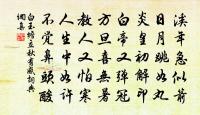 流年急似箭
日月跳如丸
炎皇初解印
白帝又彈冠
方且喜無暑
教人又怕寒
人生如許
不覺鼻頭酸
白玉蟾立秋有感詞典
網集